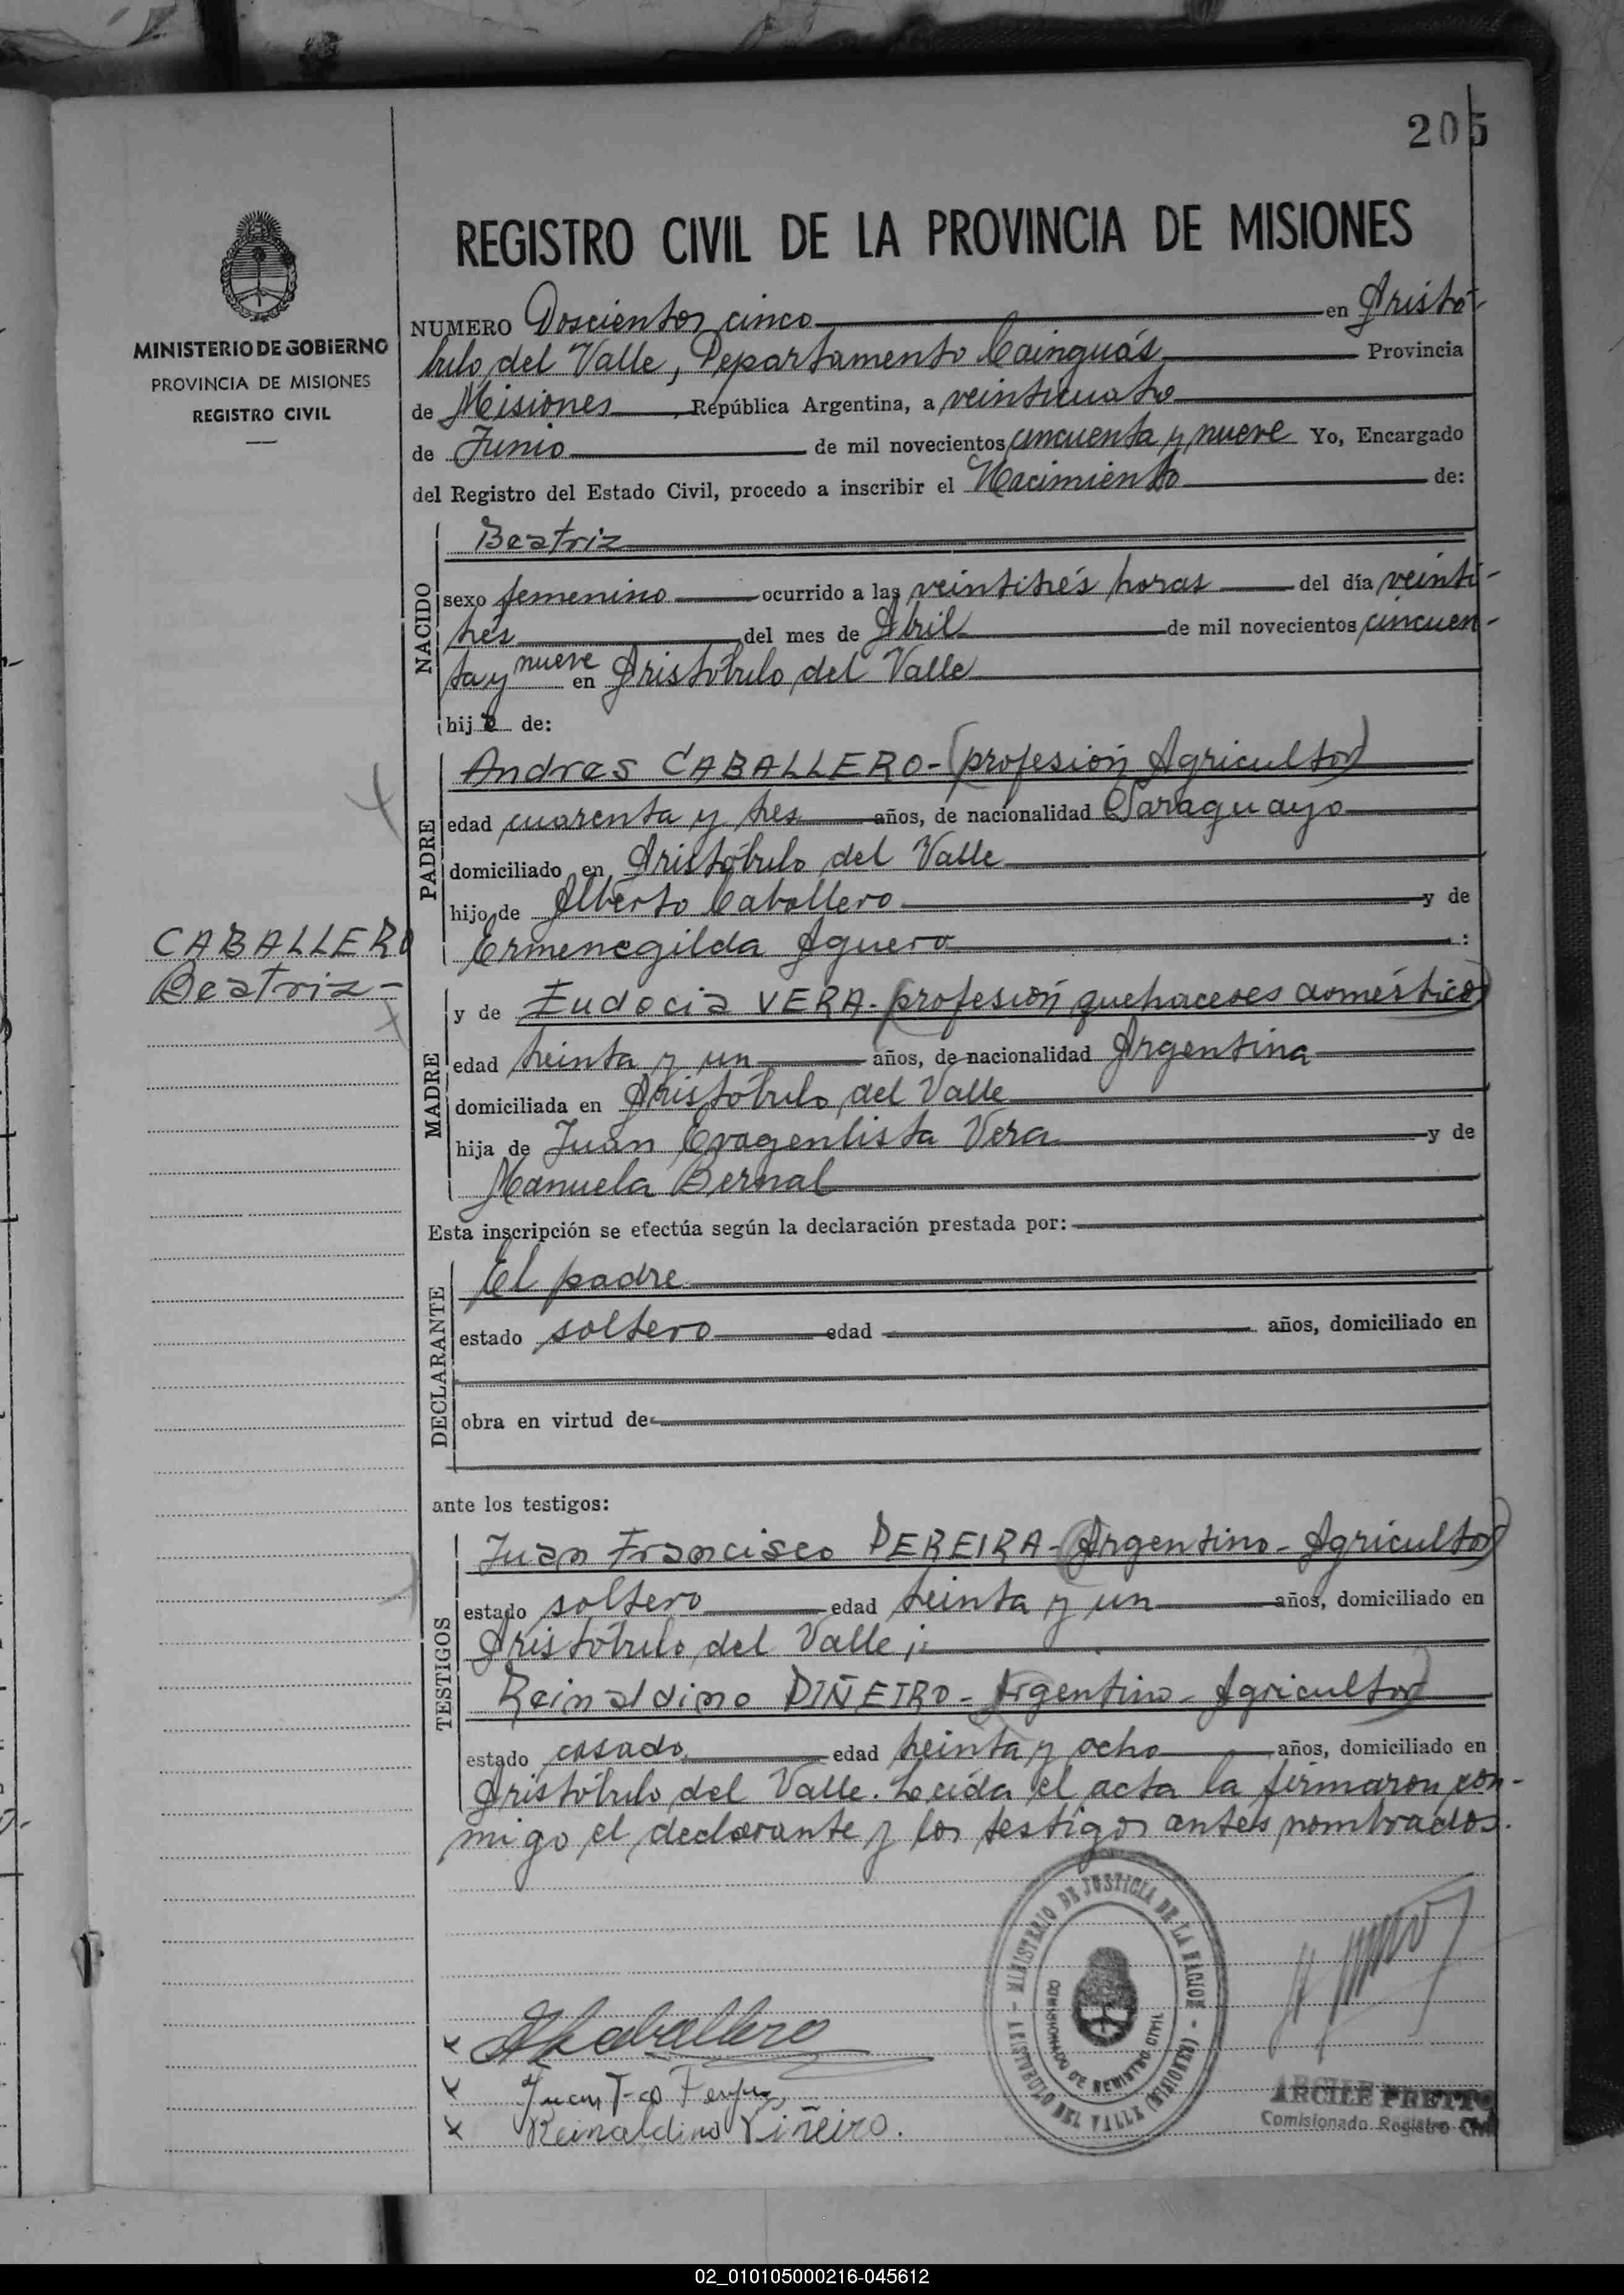 205
MINISTERIO DE GOBIERNO
PROVINCIA DE MISIONES
REGISTRO CIVIL
REGISTRO CIVIL DE LA PROVINCIA DE MISIONES
NUMERO Doscientos cinco en Aristó-
bulo del Valle, Departamento Cainguás Provincia
de Misiones, República Argentina, a veinticuatro
de Junio de mil novecientos cincuenta y nueve Yo, Encargado
del Registro del Estado Civil, procedo a inscribir el Nacimiento de:
NACIDO
Beatriz
sexo femenino ocurrido a las veintitrés horas del día veinti-
trés del mes de Abril de mil novecientos cincuen-
ta y nueve en Aristóbulo del Valle
hij de:
PADRE
Andres CABALLERO- (profesión Agricultor)
edad cuarenta y tres años, de nacionalidad Paraguayo
domiciliado en Aristóbulo del Valle
hijo de Alberto Caballero y de
Ermenegilda Aguero :
CABALLERO
Beatriz-
MADRE
y de Eudocia VERA- (profesión quehaceres doméstico)
edad treinta y un años, de nacionalidad Argentina
domiciliada en Aristóbulo del Valle
hija de Juan Evagenlista Vera y de
Manuela Bernal
Esta inscripción se efectúa según la declaración prestada por:
DECLARANTE
El padre
estado soltero edad años, domiciliado en
obra en virtud de
ante los testigos:
TESTIGOS
Juan Francisco PEREIRA- (Argentino- Agricultor)
estado soltero edad treinta y un años, domiciliado en
Aristóbulo del Valle;
Reinaldino PIÑEIRO- (Argentino- Agricultor)
estado casado edad treinta y ocho años, domiciliado en
Aristóbulo del Valle. Leída el acta la firmaron con-
migo el declarante y los testigos antes nombrados.
MINISTERIO DE JUSTICIA DE LA NACION - ARISTOBULO DEL VALLE (MISIONES) -
COMISIONADO DE REGISTRO CIVIL
x ACaballero
x Juan Fco
x Reinaldino Piñeiro.
ARCILE PRETTO
Comisionado Registro Civil
02_010105000216-045612